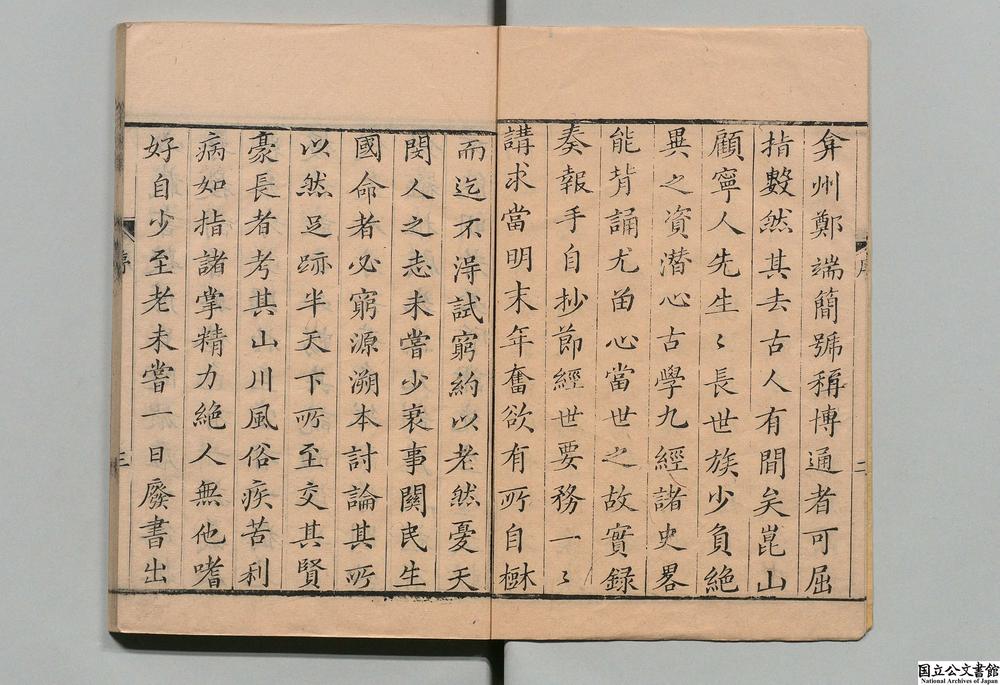 弇州鄭端簡號稱博通者可屈
指數然其去古人有間矣崑山
顧寧人先生〻長世族少負絶
異之資潛心古學九經諸史畧
能背誦尤留心當世之故實録
奏報手自抄節經世要務一〻
講求當明末年奮欲有所自樹
而迄不淂試窮約以老然憂天
閔人之志未嘗少衰事關民生
國命者必窮源溯本討論其所
以然足跡半天下所至交其賢
豪長者考其山川風俗疾苦利
病如指諸掌精力絶人無他嗜
好自少至老未嘗一日廢書出
序
二
序
三
国立公文書館
National Archives of Japan